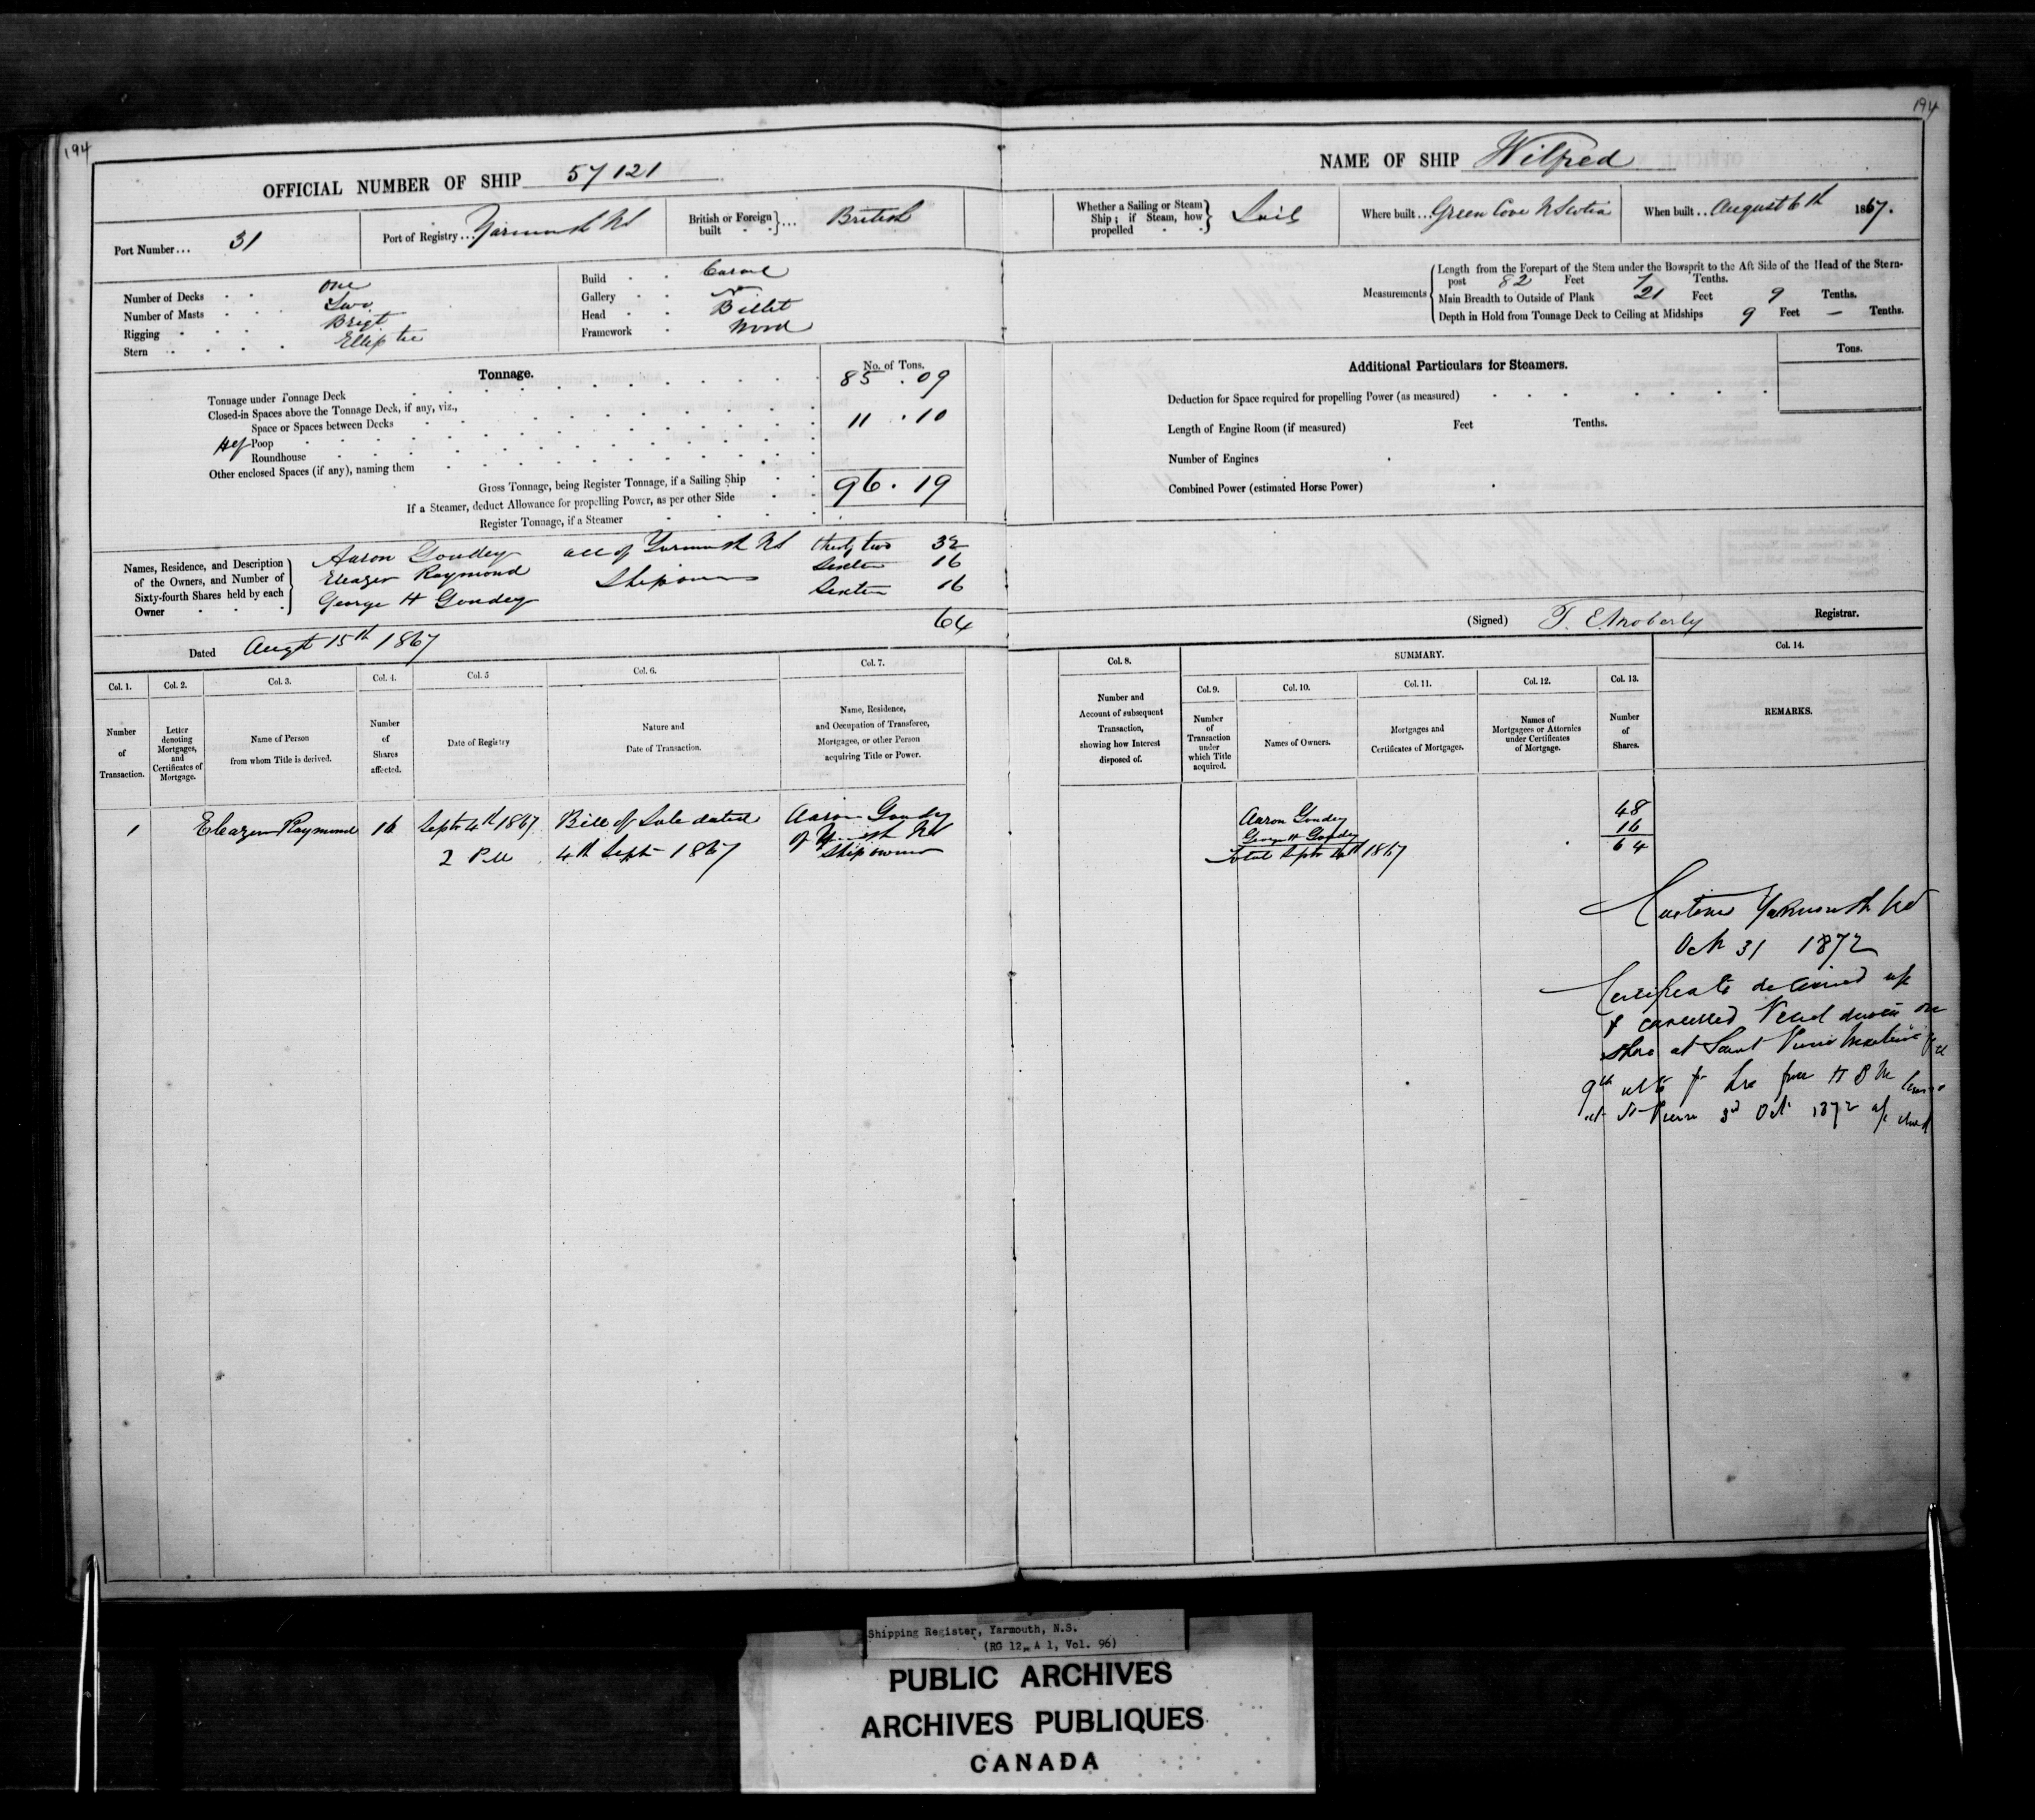 194
194
OFFICIAL NUMBER OF SHIP 57121
NAME OF SHIP Wilfred
Port Number... 31
Port of Registry... Yarmouth NS
British or Foreign built } ... British
Whether a Sailing or Steam Ship; if Steam, how propelled } Sails
Where built... Green Cove N Scotia
When built... August 6th 1867.
Number of Decks One
Number of Masts Two
Rigging Brigt
Stern Elliptic
Build Carvel
Gallery
Head Billet
Framework Wood
Measurements
Length from the Forepart of the Stem under the Bowsprit to the Aft Side of the Head of the Stern-
post 82 Feet / Tenths.
Main Breadth to Outside of Plank 21 Feet 9 Tenths.
Depth in Hold from Tonnage Deck to Ceiling at Midships 9 Feet — Tenths.
Tonnage.
No. of Tons.
Tonnage under Tonnage Deck 85.09
Closed-in Spaces above the Tonnage Deck, if any, viz.,
Space or Spaces between Decks
Hlf Poop 11.10
Roundhouse
Other enclosed Spaces (if any), naming them
Gross Tonnage, being Register Tonnage, if a Sailing Ship 96.19
If a Steamer, deduct Allowance for propelling Power, as per other Side
Register Tonnage, if a Steamer
Additional Particulars for Steamers.
Tons.
Deduction for Space required for propelling Power (as measured)
Length of Engine Room (if measured) Feet Tenths.
Number of Engines
Combined Power (estimated Horse Power)
Names, Residence, and Description
of the Owners, and Number of
Sixty-fourth Shares held by each
Owner
Aaron Goudey all of Yarmouth NS thirty two 32
Eleazer Raymond Shipowners Sixteen 16
George H Goudey Sixteen 16
64
Dated Augt 15th 1867
(Signed) T. E Moberly Registrar.
Col. 1.
Number
of
Transaction.
Col. 2.
Letter
denoting
Mortgages,
and
Certificates of
Mortgage.
Col. 3.
Name of Person
from whom Title is derived.
Col. 4.
Number
of
Shares
affected.
Col. 5
Date of Registry
Col. 6.
Nature and
Date of Transaction.
Col. 7.
Name, Residence,
and Occupation of Transferee,
Mortgagee, or other Person
acquiring Title or Power.
Col. 8.
Number and
Account of subsequent
Transaction,
showing how Interest
disposed of.
SUMMARY.
Col. 9.
Number
of
Transaction
under
which Title
acquired.
Col. 10.
Names of Owners.
Col. 11.
Mortgages and
Certificates of Mortgages.
Col. 12.
Names of
Mortgagees or Attornies
under Certificates
of Mortgage.
Col. 13.
Number
of
Shares.
Col. 14.
REMARKS.
1 Eleazer Raymond 16 Septr 4th 1867 Bill of Sale dated Aaron Goudey
2 PM 4th Septr 1867 of Yarmouth NS
Shipowner
Aaron Goudey 48
George H Goudey 16
Total Septr 4th 1867 64
Customs Yarmouth NS
Oct 31 1872
Certificate delivered up
& cancelled Vessel driven on
shore at Saint Pierre Martinique
9th ulto
at St Pierre 3d Oct 1872
Shipping Register, Yarmouth, N.S.
(RG 12, A 1, Vol. 96)
PUBLIC ARCHIVES
ARCHIVES PUBLIQUES
CANADA